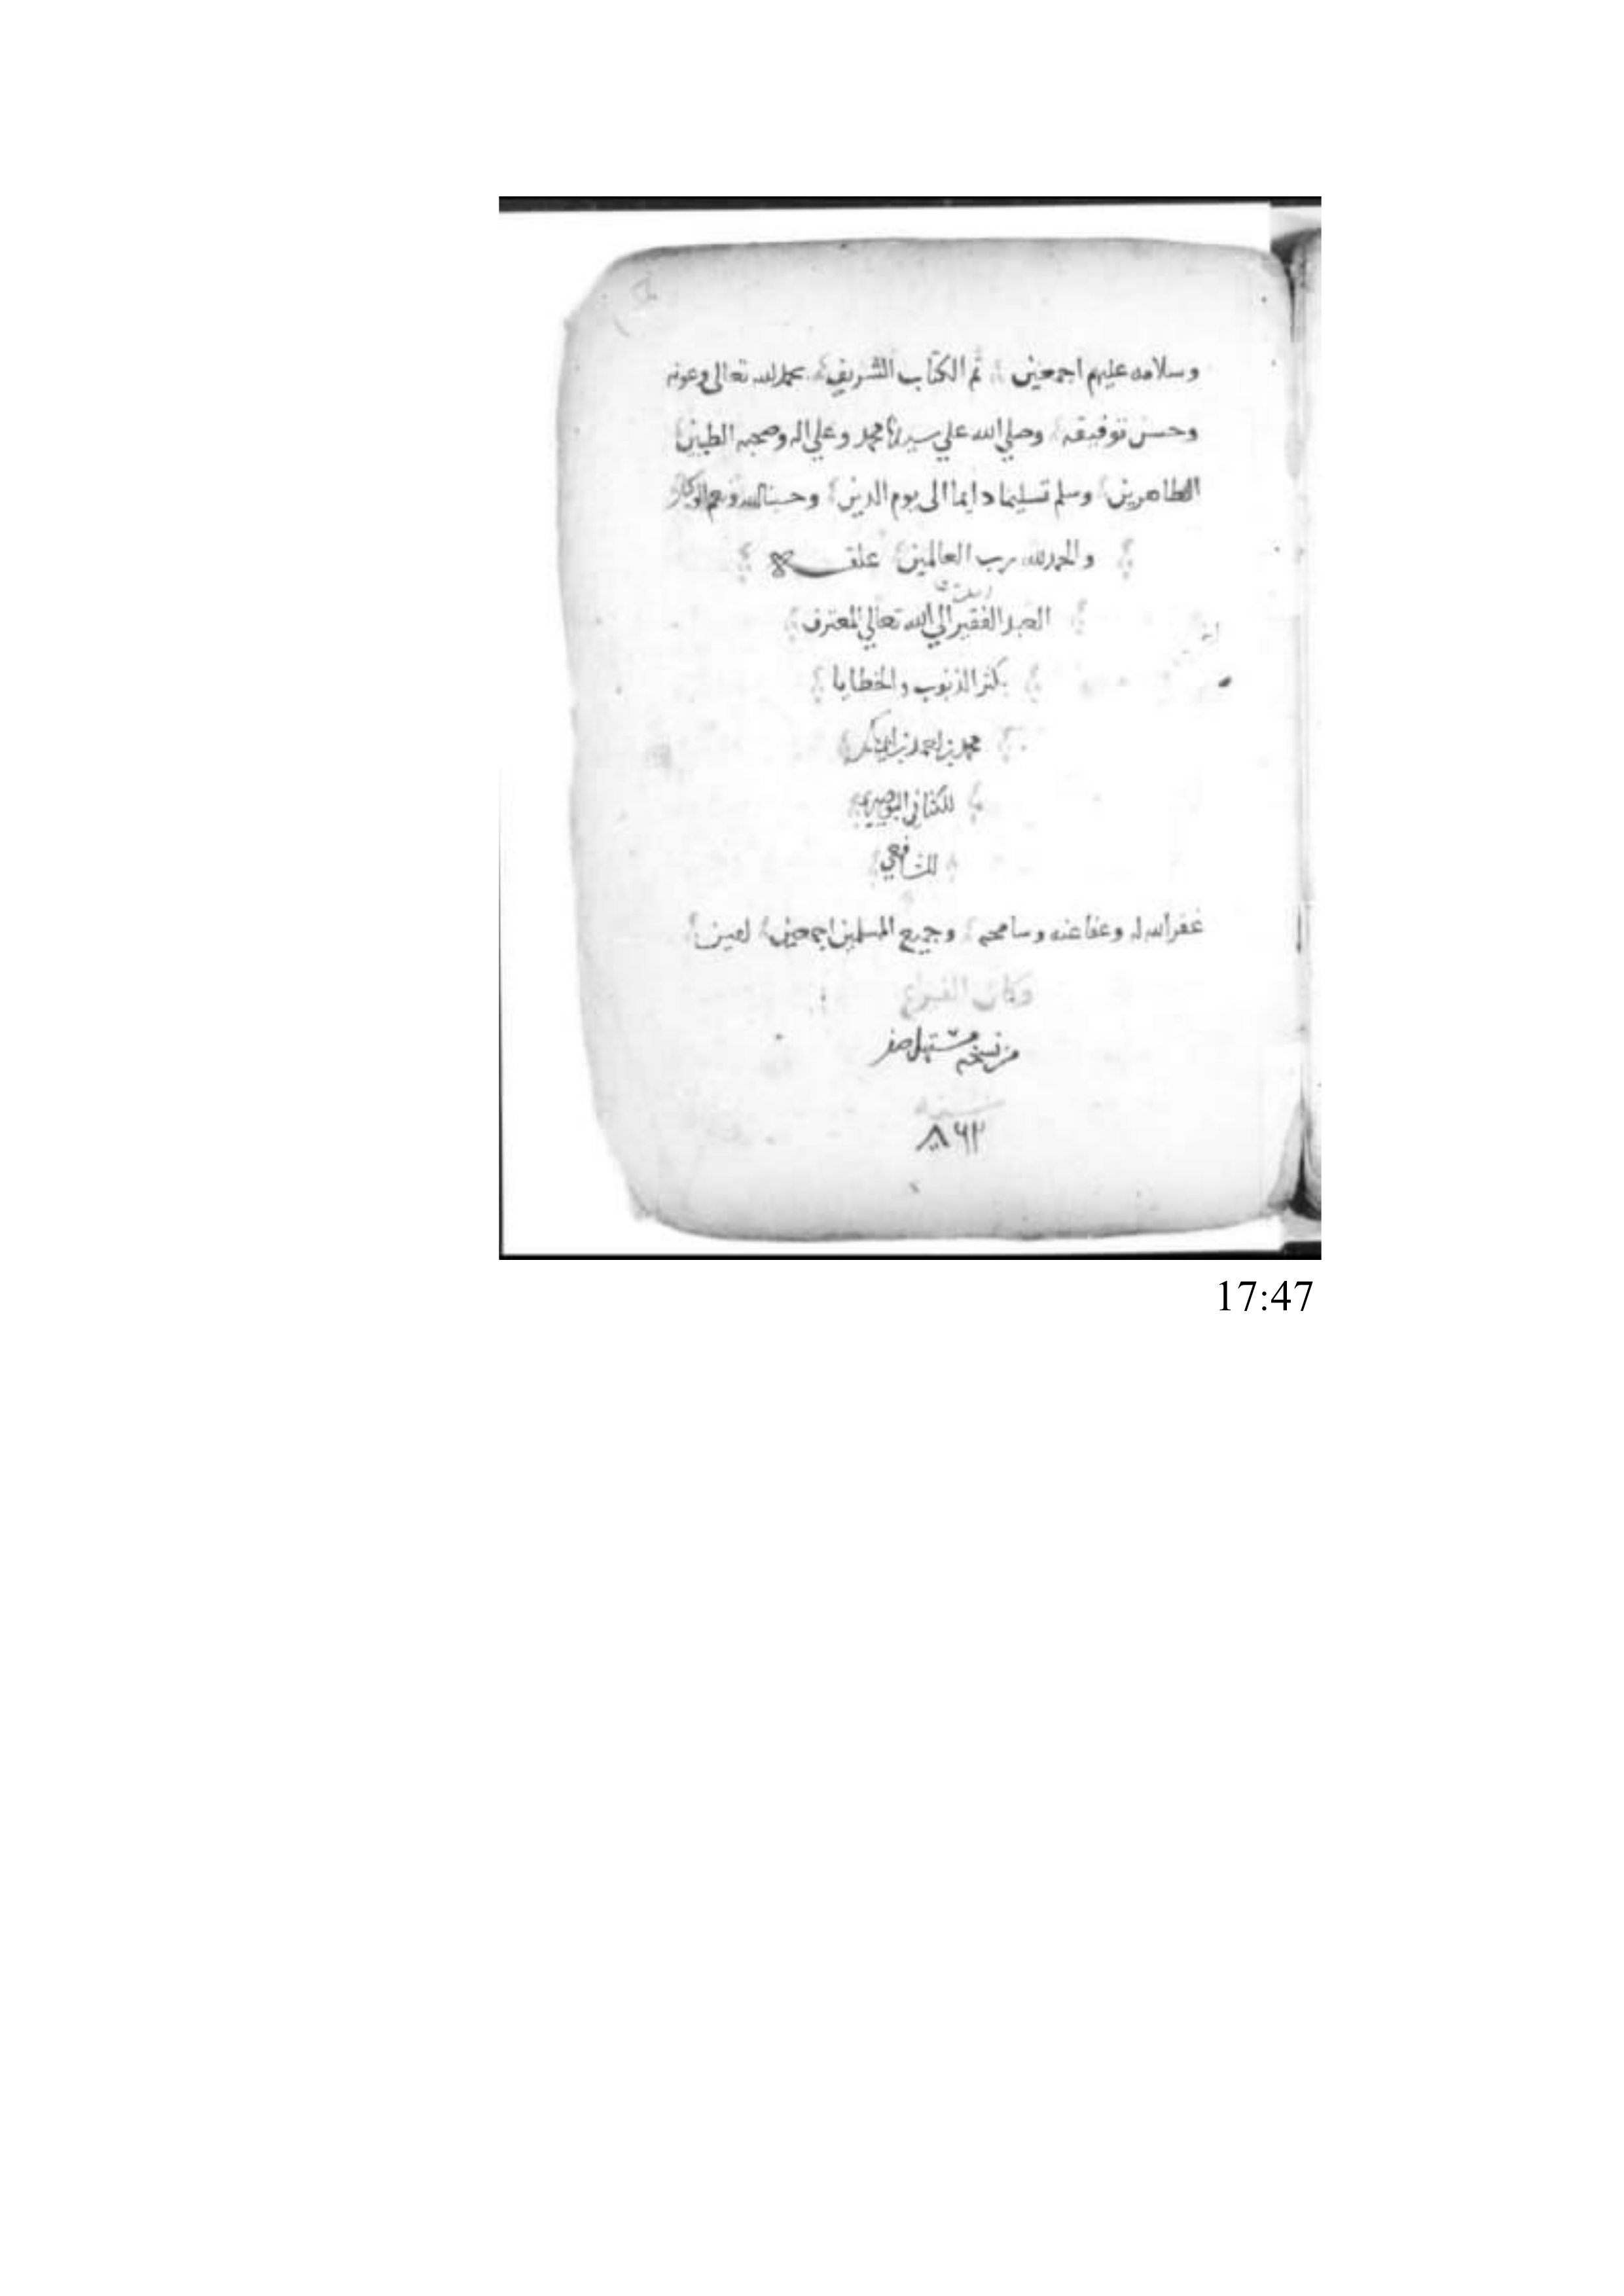 وسلامه عليهم اجمعين تم الكتاب الشريف بحمد الله تعالى وعونه
وحسن توفيقه وصلي الله علي سيدنا محمد وعلي اله وصحبه الطيبين
الطاهرين وسلم تسليما دايما الى يوم الدين وحسبنا الله ونعم الوكيل
والحمد لله رب العالمين علقه
العبد الفقير الي الله تعالي المعترف
بكثر الذنوب والخطايا
محمد بن احمد بن
الكناني البوصيري
الشافعي
غفر الله له وعفا عنه وسامحه وجميع المسلمين اجمعين
وكان الفراغ
من نسخه مستهل صفر
سنه
٨٦٢
17:47